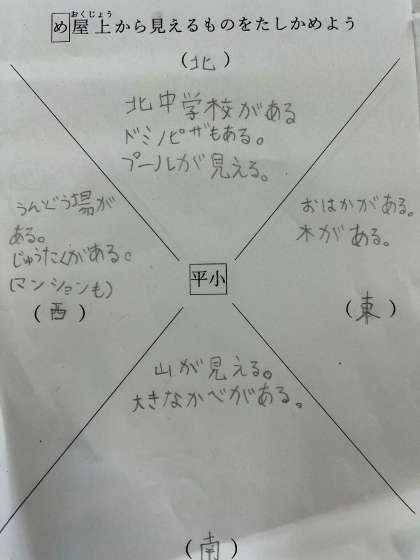 め 屋上から見えるものをたしかめよう
おくじょう
(北)
北中学校がある
ドミノピザもある。
プールが見える。
うんどう場が
ある。
じゅうたくがある。
(マンションも)
(西)
おはかがある。
木がある。
(東)
平小
山が見える。
大きなかべがある。
(南)